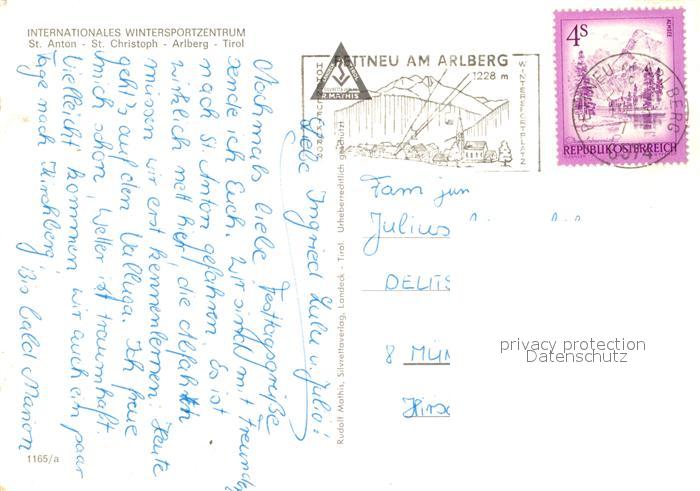 INTERNATIONALES WINTERSPORTZENTRUM
St. Anton - St. Christoph - Arlberg - Tirol
Liebe Ingried Lulu u. Julio!
Nochmals liebe Festtagsgrüße
sende ich Euch. Wir sind mit Freunden
nach St. Anton gefahren. Es ist
wirklich nett hier, die Abfahrten
müssen wir erst kennenlernen. Heute
geht's auf den Valluga. Ich freue
mich schon, Wetter ist traumhaft.
Vielleicht kommen wir auch ein paar
Tage nach Kirchberg!
Bis bald Marion
1165/a
Rudolf Mathis, Silvrettaverlag, Landeck - Tirol. Urheberrechtlich geschützt
R. MATHIS
PETTNEU AM ARLBERG
1228 m
WINTERSPORTPLATZ
4S
REPUBLIK ÖSTERREICH
PETTNEU ARLBERG
6574
Fam jun
Julius
DELITS
8 MÜN
Hirsc
privacy protection
Datenschutz